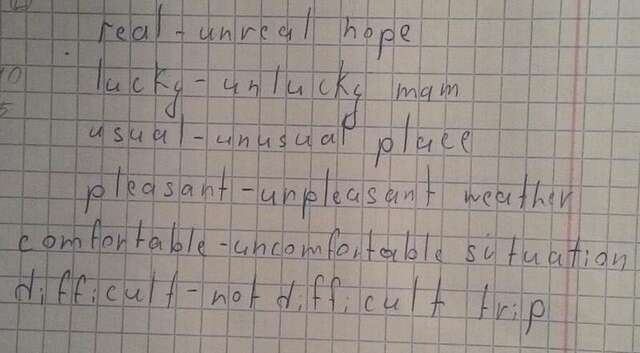 real - unreal hope
lucky - unlucky mam
usual - unusual place
pleasant - unpleasant weather
comfortable - uncomfortable situation
difficult - not difficult trip